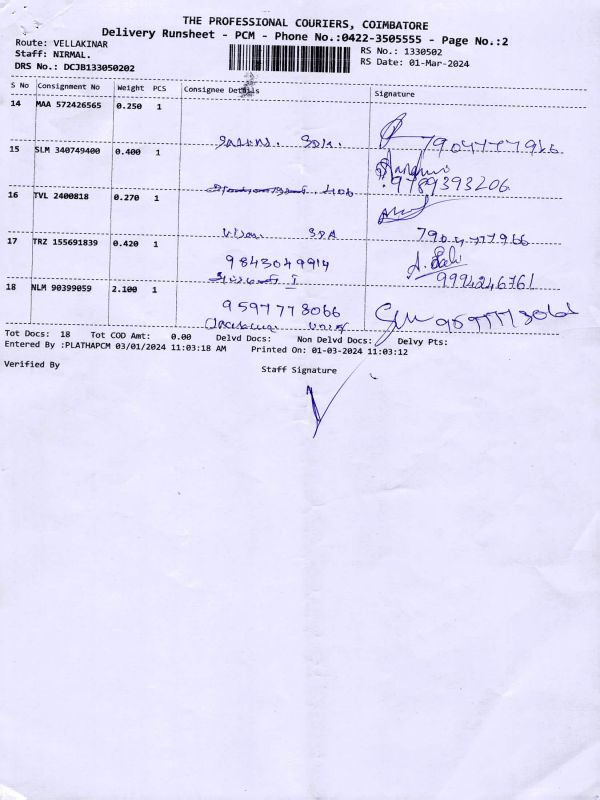 THE PROFESSIONAL COURIERS, COIMBATORE
Delivery Runsheet - PCM - Phone No.:0422-3505555 - Page No.:2
Route: VELLAKINAR
Staff: NIRMAL.
DRS No.: DCJB133050202
RS No.: 1330502
RS Date: 01-Mar-2024
S No Consignment No Weight PCS Consignee Details Signature
14 MAA 572426565 0.250 1
7904777966
15 SLM 340749400 0.400 1
9789393206
16 TVL 2400818 0.270 1
7904777966
17 TRZ 155691839 0.420 1
9843049914
9994246761
18 NLM 90399059 2.100 1
9597778066
9597773066
Tot Docs: 18 Tot COD Amt: 0.00 Delvd Docs: Non Delvd Docs: Delvy Pts:
Entered By :PLATHAPCM 03/01/2024 11:03:18 AM Printed On: 01-03-2024 11:03:12
Verified By Staff Signature